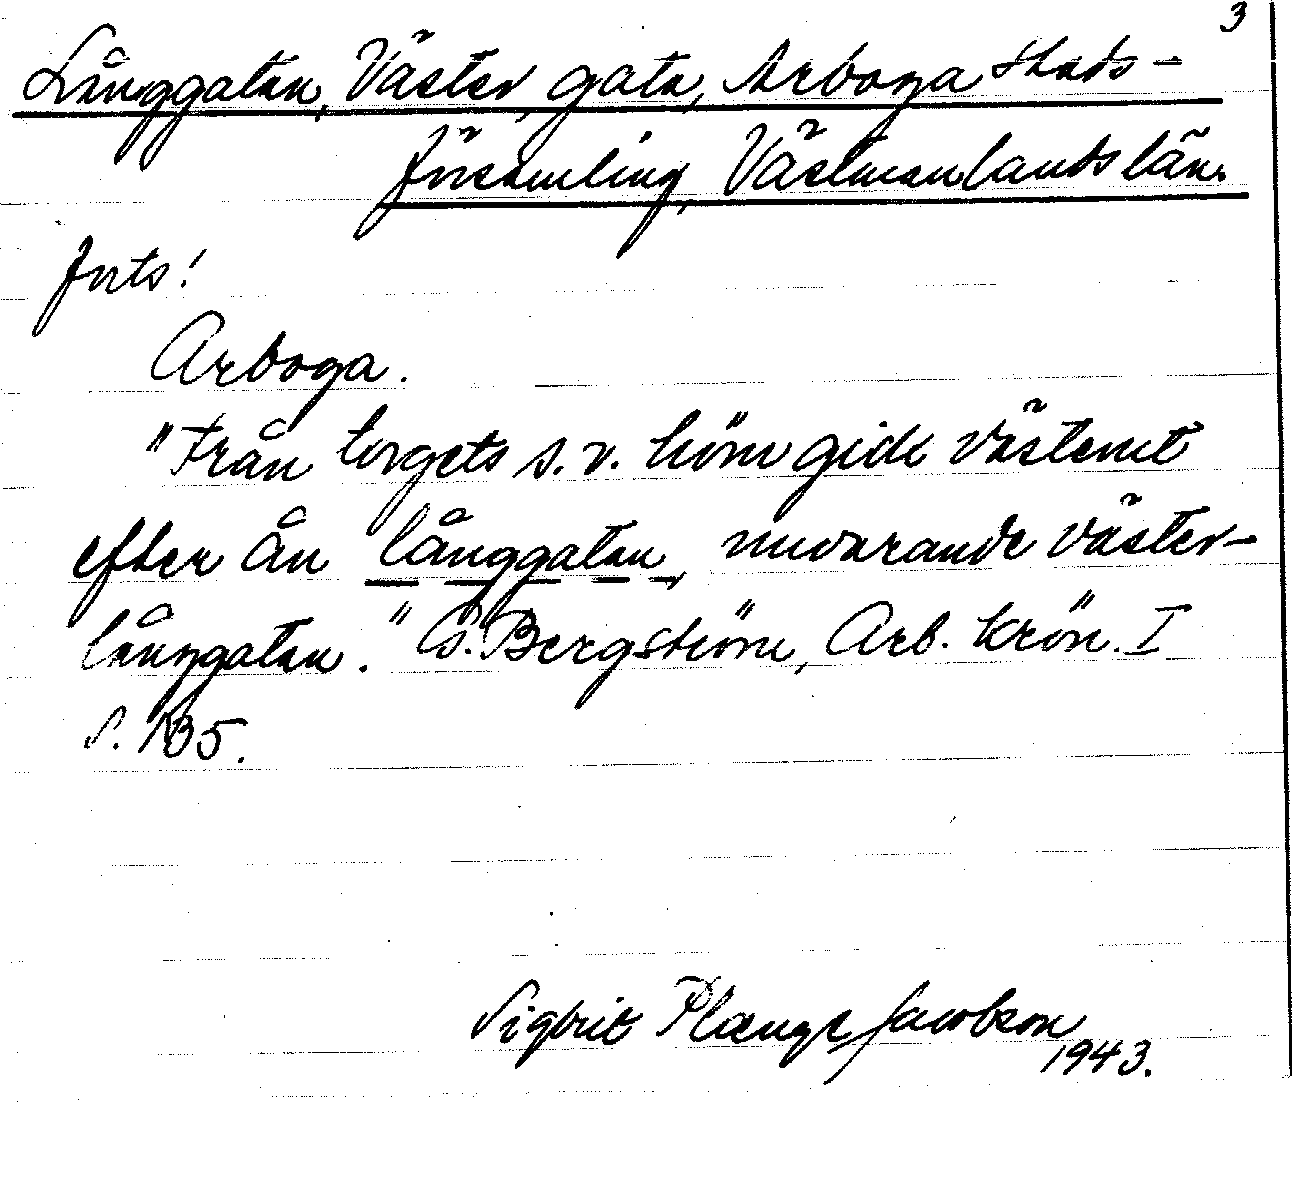 3
Långgatan, Väster, gata, Arboga stads-
församling, Västmanlands län.
Forts!
Arboga.
"Från torgets s.v. hörn gick västerut
efter ån långgatan, nuvarande väster-
långgatan." G. Bergström, Arb. krön. I
s. 135.
Sigbrit Plænge Jacobson
1943.